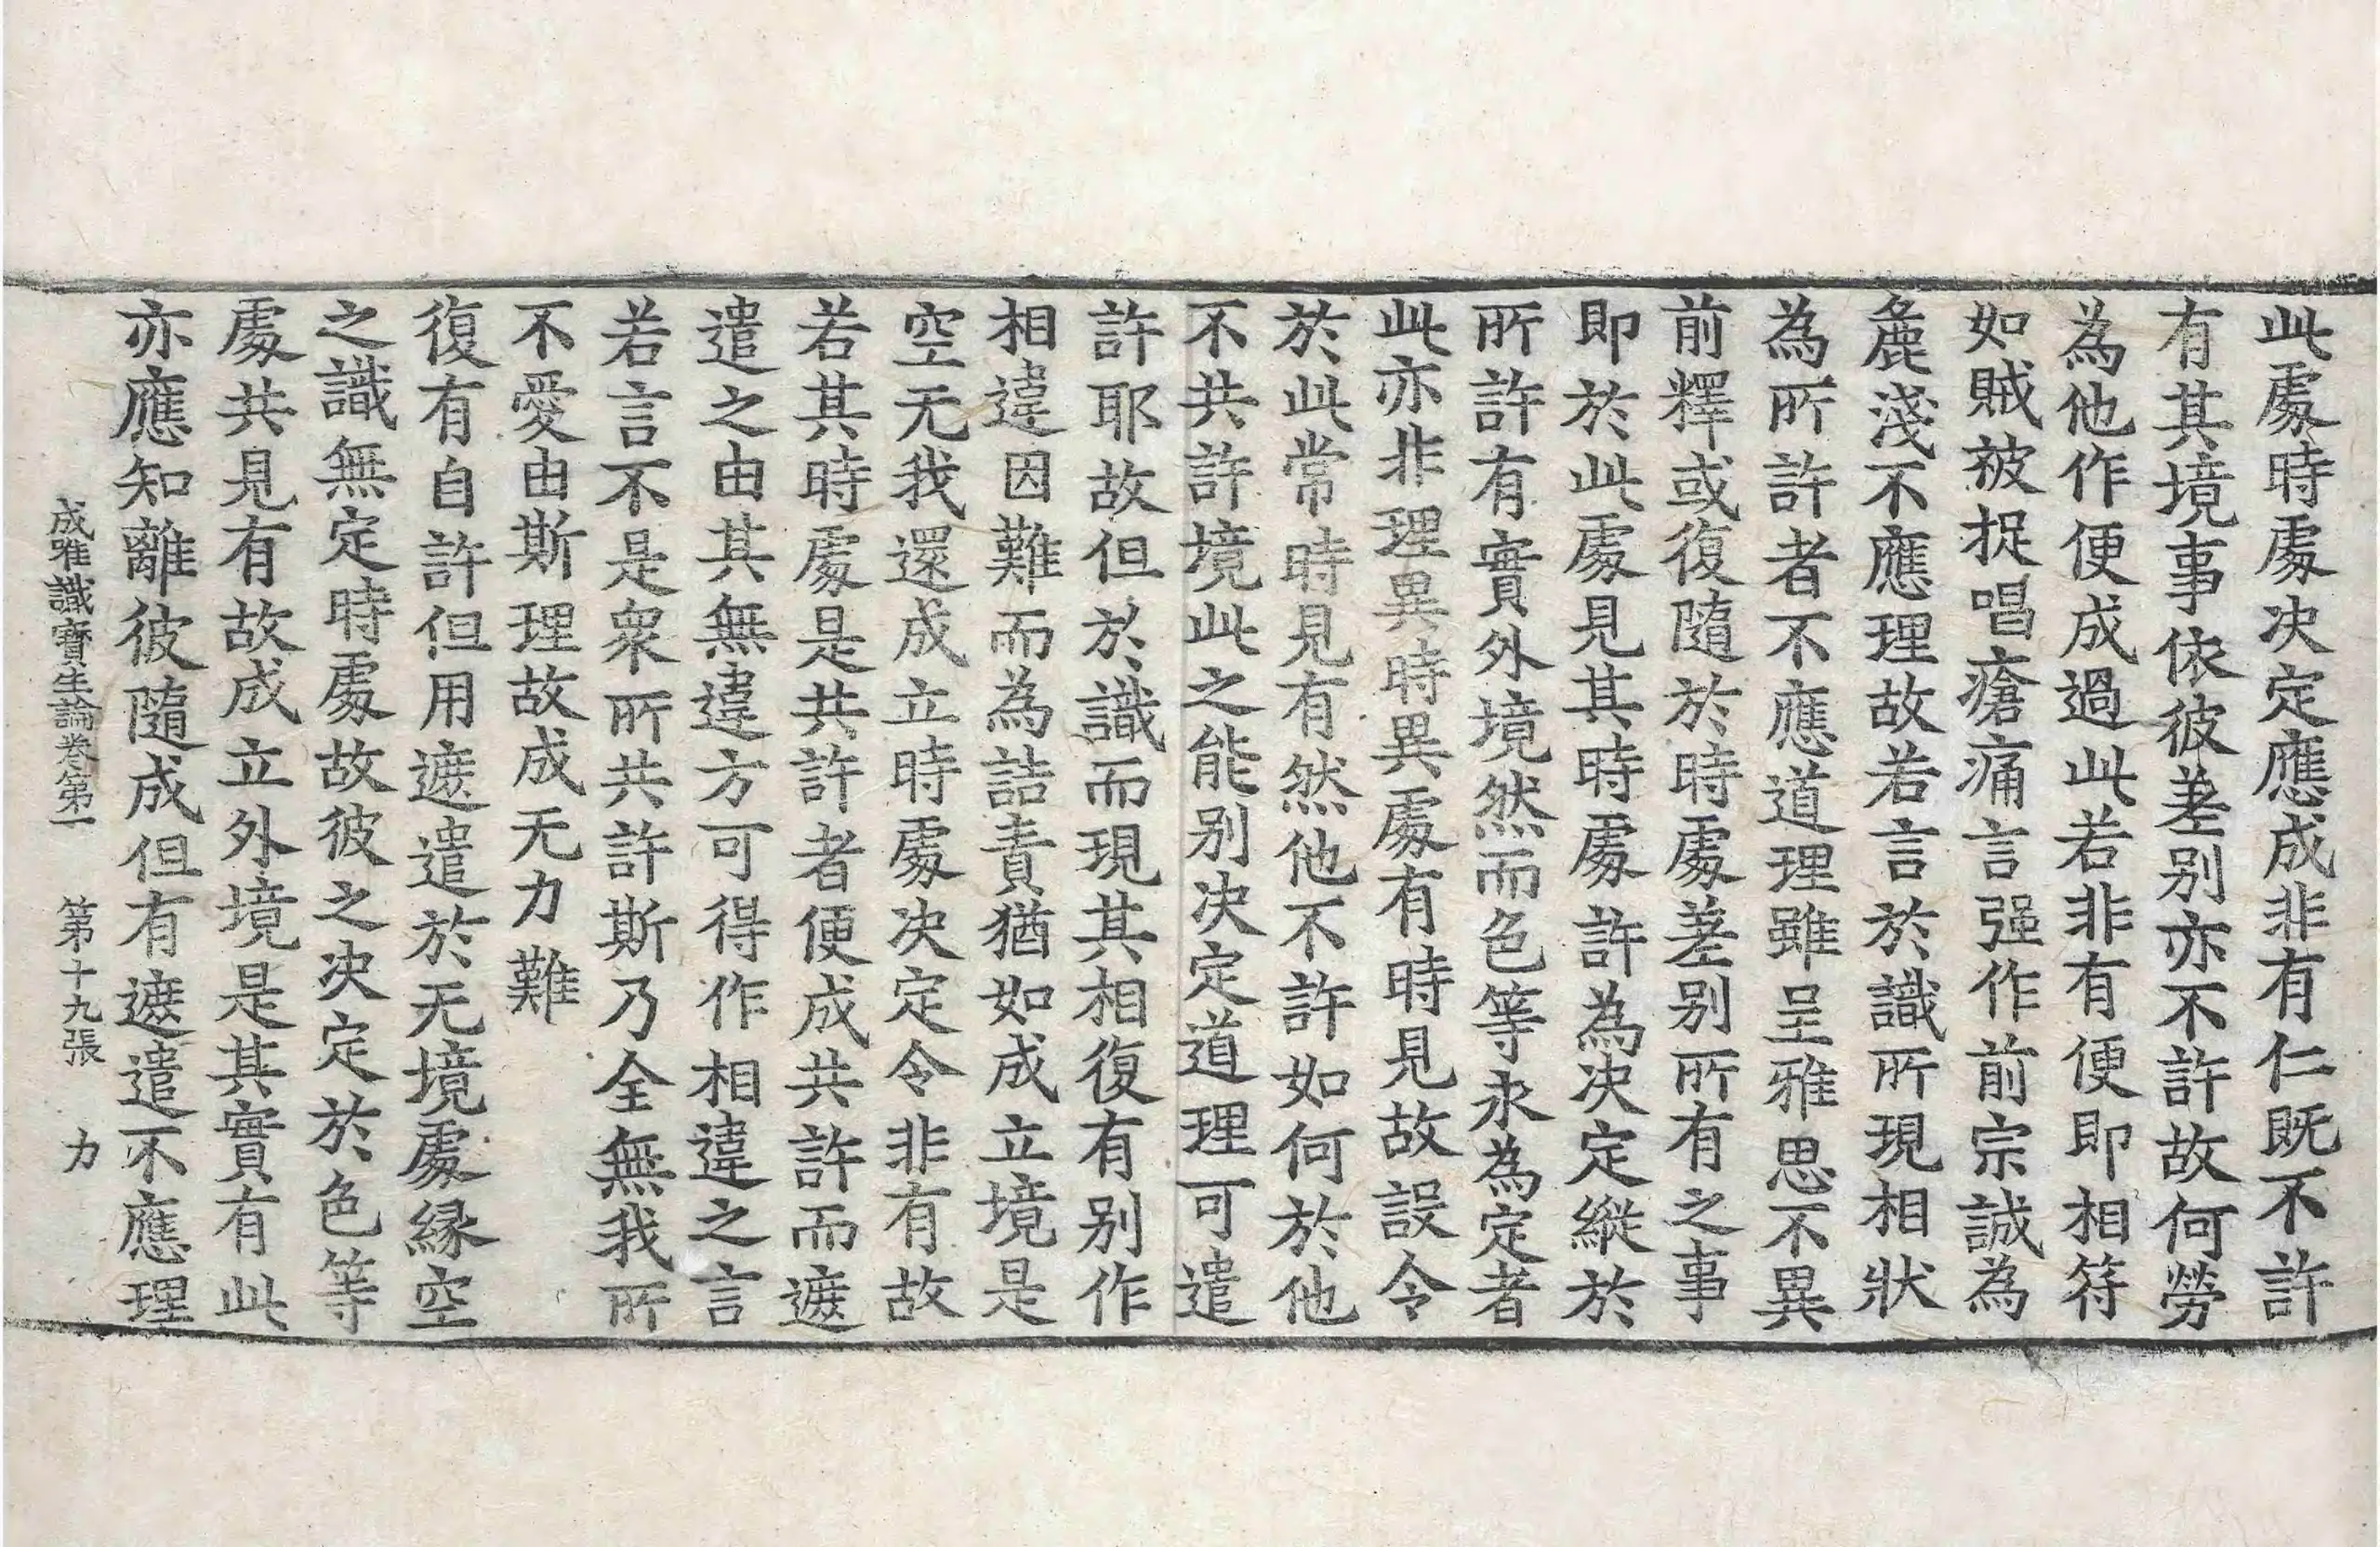 此處時處決定應成非有仁既不許
有其境事依彼差別亦不許故何勞
為他作便成過此若非有便即相符
如賊被捉唱瘡痛言强作前宗誠為
麁淺不應理故若言於識所現相狀
為所許者不應道理雖呈雅思不異
前釋或復隨於時處差別所有之事
即於此處見其時處許為決定縱於
所許有實外境然而色等永為定者
此亦非理異時異處有時見故設令
於此常時見有然他不許如何於他
不共許境此之能別決定道理可遣
許耶故但於識而現其相復有別作
相違因難而為詰責猶如成立境是
空无我還成立時處決定令非有故
若其時處是共許者便成共許而遮
遣之由其無違方可得作相違之言
若言不是衆所共許斯乃全無我所
不愛由斯理故成无力難
復有自許但用遮遣於无境處緣空
之識無定時處故彼之決定於色等
處共見有故成立外境是其實有此
亦應知離彼隨成但有遮遣不應理
成唯識寶生論卷第一 第十九張 力